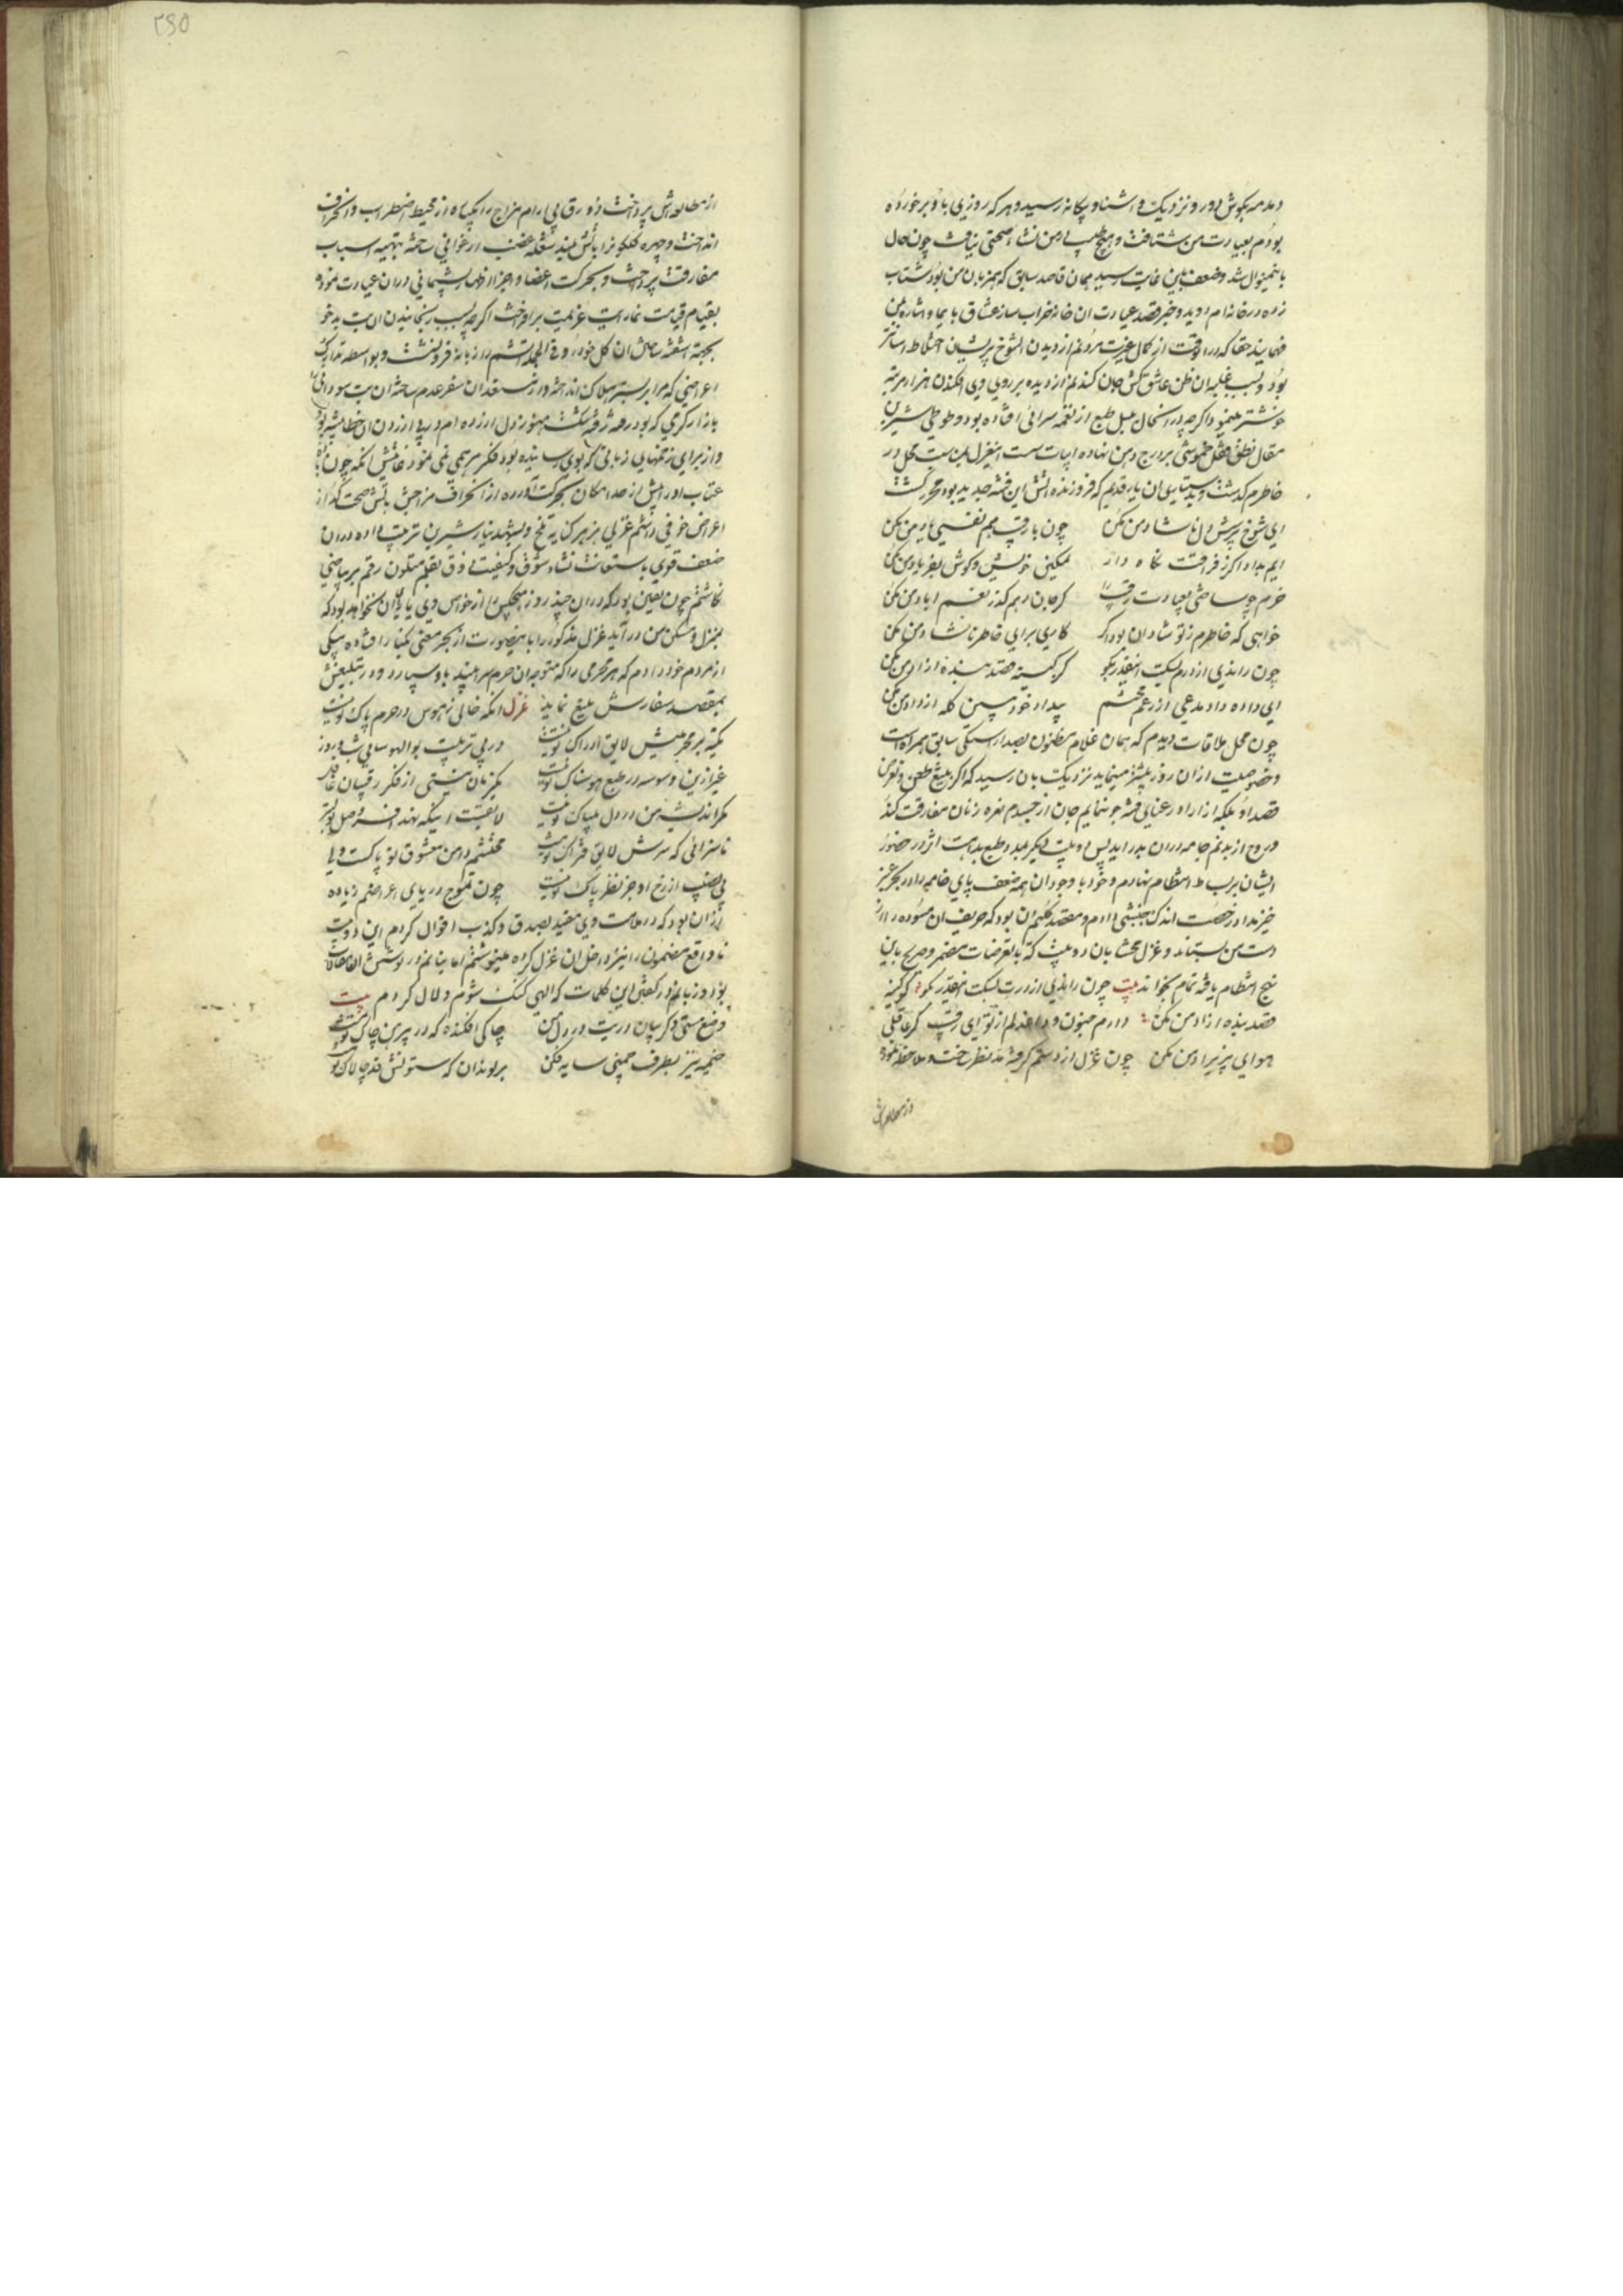 دمدمه بگوش دور و نزدیک و اشنا و بیکانه رسید و هر که روزی با و برخورده
بودم بعیادت من شتافت و هیچ طبیب در من نشاء صحتی نیافت چون حال
باینمنوال شد و ضعف باین غایت رسید همان قاصد سابق که همزبان من بود شتاب
زده در خانه ام دوید و خبر قصد عیادت ان خانه خراب ساز عشاق بایما و اشاره بمن
فهمانید حقا که در انوقت از کمال غیرت مردنم از دیدن انشوخ پریشان اختلاط اسانتر
بود و بسبب غلبه ان ظن عاشق کش جان کندنم از دیده بر روی وی افکندن هزار مرتبه
خوشتر مینمود اگرچه در انحال بلبل طبع از نغمه سرائی افتاده بود و طوطی شیرین
مقال نطق قفل خموشی بر درج دهن نهاده ابیات ست اینغزل بمناسبت محل در
خاطرم گذشت و بدستیاری ان یار قدیم که فروزنده اتش این فتنه جدید بود محرر کشت
ای شوخ پرسش دل ناشاد من مکن    چون با رقیب هم نفسی یاد من مکن
ایم بداد اگر ز فراقت نگاه دار    تمکین خویش و گوش بفریاد من مکن
خرم چو ساختی بعیادت رقیب را    گر جان دهم گذر بغم اباد من مکن
خواهی که خاطرم ز تو شادان بود اگر    کاری برای خاطر ناشاد من مکن
چون راندی از درم بسکت اینقدر بگو    کز کینه قصد بنده ازاد من مکن
ای داده داد مدعی از رغم محتشم    بیداد خود ببین گله از داد من مکن
چون محل ملاقات دیدم که همان غلام مظنون بصد اراستگی سابق همراه است
و خصوصیت از ان روز بیشتر مینماید نزدیک بان رسید که اگر بتیغ طعن و تعرض
قصد او بلکه ازار او رعنایی فتنه جو ننمایم جان از جسدم نعره زنان مفارقت کند
و روح از بدنم جامه دران بدر اید پس دو بیت دیگر بمدد طبع بداهت اثر در حضور
ایشان بر بساط انتظام نهادم و خود با وجود ان همه ضعف پای خامه را در بحر عنبر
خیز مداد رخصت اندک جنبشی دادم و مقصد کلیم ان بود که حریف ان مسوده را از
دست من بستاند و غزل محشا بان دو بیت که بتعرضات مضمر و صریح باین
نهج انتظام یافته تمام بخواند بیت چون راندی از درت بسکت اینقدر بگو کز کینه
قصد بنده ازاد من مکن دارم جنون و داغ دلم از تو ای رقیب گر عاقلی
هوای پریزاد من مکن چون غزل از دستم گرفته مد نظر ساخت و ملاحظه نمود
از مطالعه‌اش
از مطالعه اش پرداخت زورق بی ارام مزاج را بیکباره از محیط اضطراب و انحراف
انداخت و چهره گلگونرا باتش بلند شعله غضب ارغوانی ساخته بتهیه اسباب
مفارقت پرداخت و بحرکت اعضا و اجزا اظهار پشیمانی در ان عیادت نموده
بقیام قیامت نما رایت عزیمت برافراخت اگرچه بسبب رنجانیدن ان بت بدخو
بجهة اشفته ساختن ان گل خودرو فی الجمله اتشم را زبانه فرو نشست و بواسطه تدارک
اعراضی که مرا بر بستر هلاک انداخته و از مستعدان سفر عدم ساخته ان بت سودائی را
بازار گرمی که بود رفته رفته شکست هنوز دل ازرده ام در پی ازردن ان خطا پیشه بود
و از برای زخمهایی ز بانی که بوی رسانیده بود فکر مرهمی نمی نمود غایتش انکه چون
عتاب او را پیش از حد امکان بحرکت اورده از انحراف مزاجش باتش صحبت گداز
اعراض خوفی داشتم غزلی بزهر کنایه تلخ و بشهد نیاز شیرین ترتیب داده در ان
ضعف قوی باستعانت نشاء شوق و کیفیت ذوق بقلم متلون رقم بر بیاضی
نگاشتم چون یقین بود که در ان چند روز هیچکس از خواص وی یارای ان نخواهد بود که
بمنزل و مسکن من در آید غزل مذکور را باینصورت از بحر معنی بکنار افتاده بیکی
از مردم خود دادم که هر محرمی را که متوجه ان حرم سرا بیند باو سپارد و در تبلیغش
بمقصد سفارش بلیغ نماید غزل انکه خالی ز هوس در حرم پاک تو نیست
نکته بر محرمیش لایق ادراک تو نیست    در پی تربیت بوالهوسانی شب و روز
غیر ازین وسوسه در طبع هوسناک تو نیست    یکزمان نیستی از فکر رقیبان غافل
مگر اندیشه من در دل بیباک تو نیست    لایقست اینکه نهند افسر وصل تو بسر
ناسزائی که سرش لایق فتراک تو نیست    محتشم دامن معشوق تو پاکست ولی
بی نصیب از رخ او جز نظر پاک تو نیست    چون تموج دریای اعراضم زیاده
از ان بود که در ملامت وی مقید بصدق و کذب اقوال گردم این دو بیت
ناواقع مضمون را نیز داخل ان غزل کرده مینوشتم اما بنانم در نوشتن ان مقالات
بود و زبانم در گفتن این کلمات که الهی گنگ شوم و لال گردم بیت
وضع مستی و گریبان دریت در دل من    چاکی افکنده که در پیرهن چاک تو نیست
خیمه نیز بطرف چمنی سایه فکن    بر بوندان که ستونش قد چالاک تو